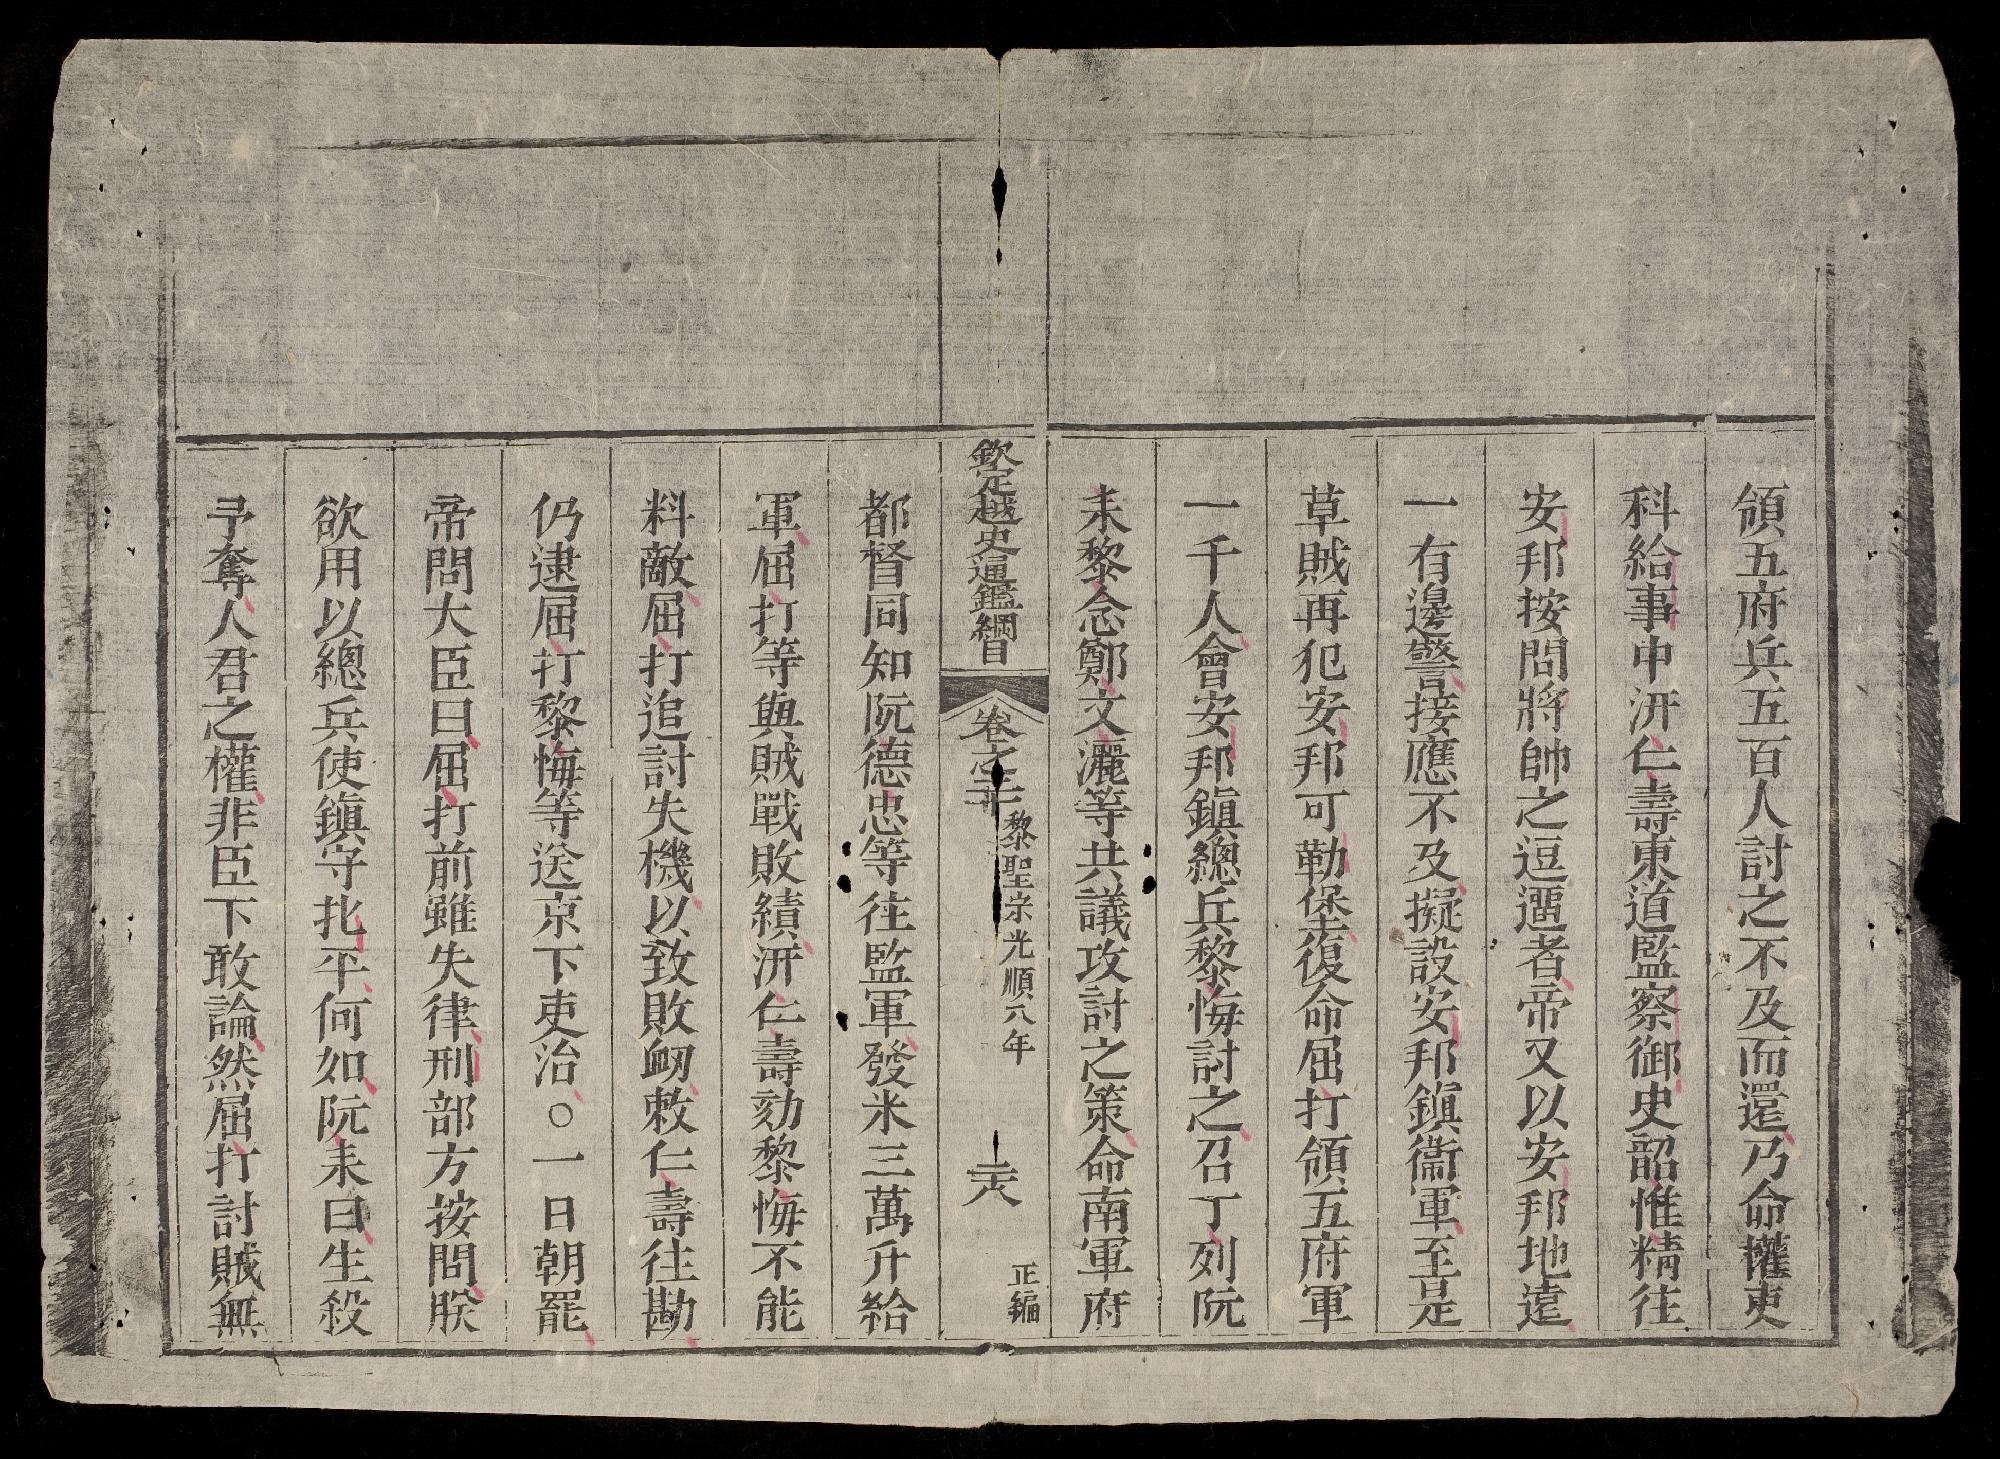 領五府兵五百人討之不及而還乃命權吏
科給事中汧仁壽東道監察御史韶惟精往
安邦按問將帥之逗遛者帝又以安邦地遠
一有邊警接應不及擬設安邦鎮衞軍至是
草賊再犯安邦可勒堡復命屈打領五府軍
一千人會安邦鎮總兵黎悔討之召丁列阮
耒黎念鄭文灑等共議攻討之策命南軍府
欽定越史通鑑綱目
卷之二十二
黎聖宗光順八年
二十八
正編
都督同知阮德忠等往監軍發米三萬升給
軍屈打等與賊戰敗績汧仁壽劾黎悔不能
料敵屈打追討失機以致敗衂敕仁壽往勘
仍逮屈打黎悔等送京下吏治○一日朝罷
帝問大臣曰屈打前雖失律刑部方按問朕
欲用以總兵使鎮守北平何如阮耒曰生殺
予奪人君之權非臣下敢論然屈打討賊無